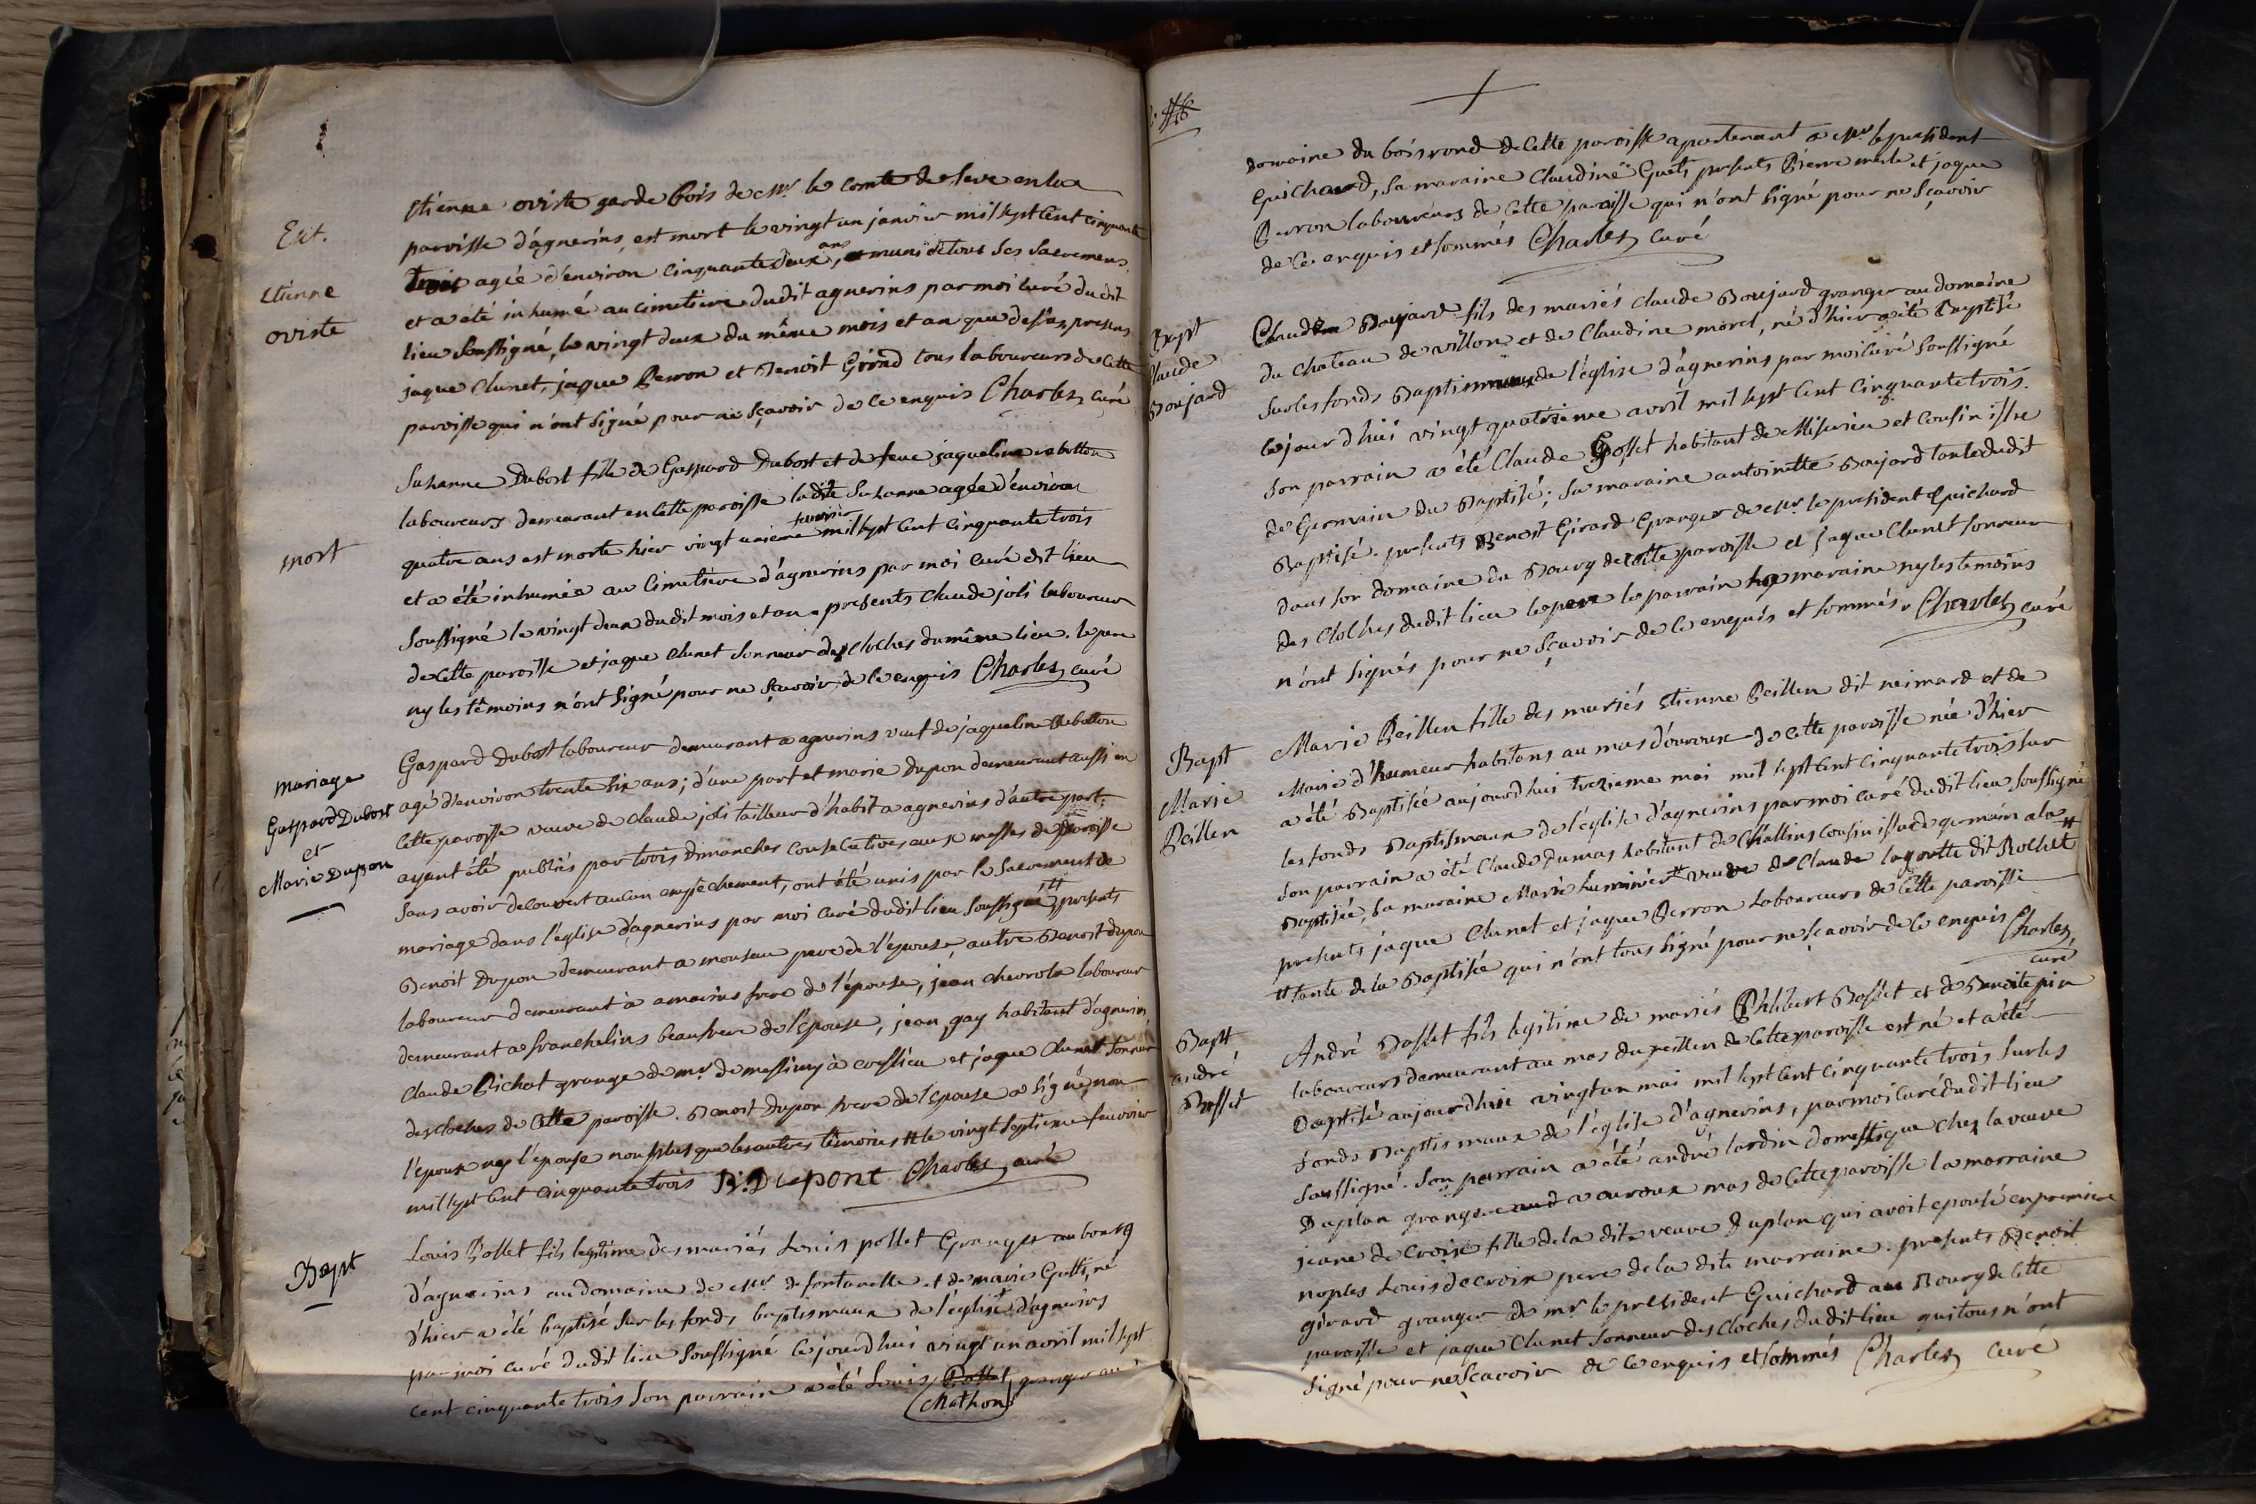 Ext.
etienne
oviste
Etienne oviste garde bois de Mr le comte de seve en la
paroisse d'agnerins, est mort le vingt un janvier mil sept cent cinquante
trois agée d'environ cinquante deux ans, muni de tous ses sacremens,
et a été inhumé au cimetiere dudit agnerins par moi curé dudit
lieu soussigné, le vingt deux du même mois et an que dessus, presens
jaque Clunet, jaque Berron et Benoit Girard tous laboureurs de cette
paroisse qui n'ont signé pour ne sçavoir de ce enquis Charles curé
mort
Suzanne Dubost fille de Gaspard Dubost et de feue jaqueline rebotton
laboureurs demeurant en cette paroisse ladite Suzanne agée d'environ
quatre ans est morte hier vingt unieme fevrier mil sept cent cinquante trois
et a été inhumée au cimetiere d'agnerins par moi curé dit lieu
soussigné le vingt deux dudit mois et an. presents Claude joli laboureur
de cette paroisse et jaque Clunet sonneur des cloches du même lieu. le pere
ny les témoins n'ont signé pour ne sçavoir, de ce enquis Charles curé
Mariage
Gaspard Dubost
et
Marie Dupon
Gaspard Dubost laboureur demeurant a agnerins veuf de jaqueline Rebotton
agé d'environ trente six ans; d'une part et marie dupon demeurant aussi en
cette paroisse veuve de Claude joli tailleur d'habit a agnerins d'autre part;
ayant été publiés par trois dimanches consecutives aux messes de paroisse
sans avoir decouvert aucun empêchement, ont été unis par le sacrement de
mariage dans l'eglise d'agnerins par moi curé dudit lieu soussigné # presents
Benoit dupon demeurant a monseau pere de l'epouse, autre Benoit dupon
laboureur demeurant à amareins frere de l'épouse, jean chevrola laboureur
demeurant a franchelins beaufrere de l'epouse, jean gay habitant d'agnerin,
Claude Bichat granger de mr de messimy à cesslieu et jaque Clunet sonneur
des cloches de cette paroisse. Benoit dupon frere de l'epouse a signé, non
l'epoux ny l'epouse non plus que les autres témoins # le vingt septieme fevrier
mil sept cent cinquante trois B. Dupont Charles curé
Bapt
Louis Pollet fils legitime des mariés Louis pollet Granger au bourg
d'agnerins au domaine de Mr de fontanelle et de marie Guetts, né
d'hier a été baptisé sur les fonds baptismaux de l'église d'agnerins
par moi curé dudit lieu soussigné ce jourd'hui vingt un avril mil sept
cent cinquante trois son parrain a été Louis Pollet granger au
Chathon
domaine du bois rond de cette paroisse apartenant a Mr le president
Guichard, sa maraine Claudine Guets presents Pierre merle et jaque
Berron laboureurs de cette paroisse qui n'ont signé pour ne sçavoir
de ce enquis et sommés Charles curé
Bapt
Claude
Boujard
Claude Boujard fils des mariés Claude Boujard granger au domaine
du chateau de villon et de Claudine morel, né d'hier a été Baptisé
sur les fonds Baptismaux de l'église d'agnerins par moi curé soussigné
ce jourd'hui vingt quatrieme avril mil sept cent cinquante trois.
Son parrain a été Claude Gosset habitant de Miserieu et cousin issu
de Germain du Baptisé; sa maraine antoinette Boujard tante dudit
Baptisé. presents Benoit Girard Granger de Mr le president Guichard
dans son domaine du Bourg de cette paroisse et jaque Clunet sonneur
des Cloches dudit lieu le pere le parrain la maraine ny les temoins
n'ont signés pour ne sçavoir de ce enquis et sommés. Charles curé
Bapt
Marie
Beillen
Marie Beillen fille des mariés Etienne Beillen dit neimard et de
Marie d'humeur habitans au mas d'ouroux de cette paroisse née d'hier
a été Baptisée aujourd'hui trezieme mai mil sept cent cinquante trois sur
les fonds Baptismaux de l'église d'agnerins par moi curé dudit lieu soussigné
son parrain a été Claude dumas habitant de Challins cousin issu de germain a la
Baptisée, sa maraine Marie huminier # veuve de Claude lagoutte dit Rochet #
presents jaque Clunet et jaque Berron Laboureurs de cette paroisse
# tante de la Baptisée qui n'ont tous signé pour ne sçavoir de ce enquis Charles
curé
Bapt
andré
Basset
André Basset fils legitime de mariés Philibert Basset et de Benoite pin
laboureurs demeurant au mas du peillen de cette paroisse est né et a été
Baptisé aujourd'hui vingt un mai mil sept cent cinquante trois sur les
fonds Baptismaux de l'église d'agnerins, par moi curé dudit lieu
soussigné. Son parrain a été andré lardin domestique chez la veuve
Duplan grangere a ouroux mas de cette paroisse la marraine
jeane decroix fille de la dite veuve Duplan qui avoit epousé en premiere
nopces Louis decroix pere de la dite marraine. presents Benoit
girard granger de mr le president Guichard au Bourg de cette
paroisse et jaque Clunet sonneur des cloches dudit lieu qui tous n'ont
signé pour ne sçavoir de ce enquis et sommés Charles curé